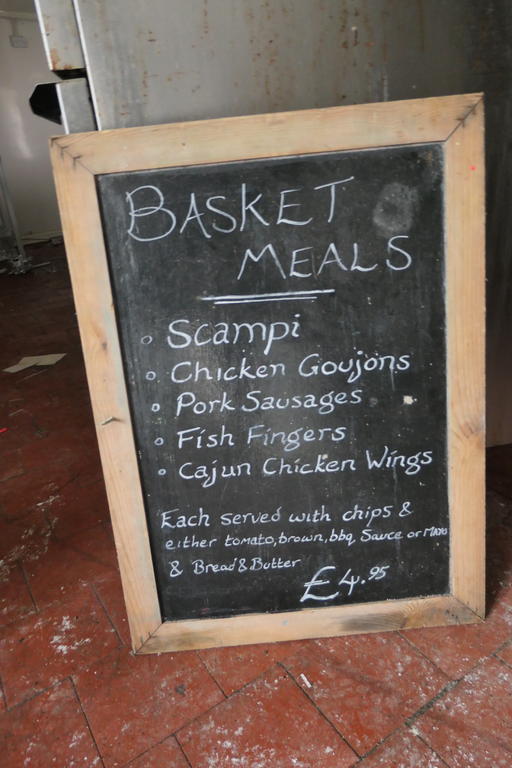 BASKET
MEALS
Scampi
Chicken Goujons
Pork Sausages
Fish Fingers
Cajun Chicken Wings
Each served with chips &
either tomato, brown, bbq Sauce or MAYO
& Bread & Butter
£4.95